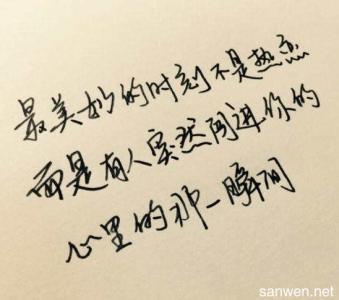 最美妙的时刻不是热恋
而是有人突然闯进你的
心里的那一瞬间
sanwen.net